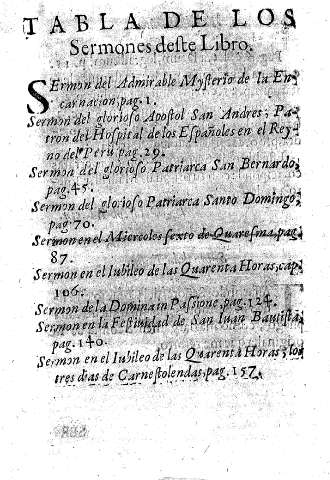 TABLA DE LOS
Sermones deste Libro.
SErmon del Admirable Mysterio de la En-
carnacion, pag. 1.
Sermon del glorioso Apostol San Andres, Pa-
tron del Hospital de los Españoles en el Rey-
no del Perù pag. 29.
Sermon del glorioso Patriarca San Bernardo,
pag. 45.
Sermon del glorioso Patriarca Santo Domingo,
pag. 70.
Sermon en el Miercoles sexto de Quaresma, pag.
87.
Sermon en el Iubileo de las Quarenta Horas, cap.
106.
Sermon de la Domina in Passione, pag. 124.
Sermon en la Festiuidad de San Iuan Bautista,
pag. 140.
Sermon en el Iubileo de las Quarenta Horas, los
tres dias de Carnestolendas, pag. 157.